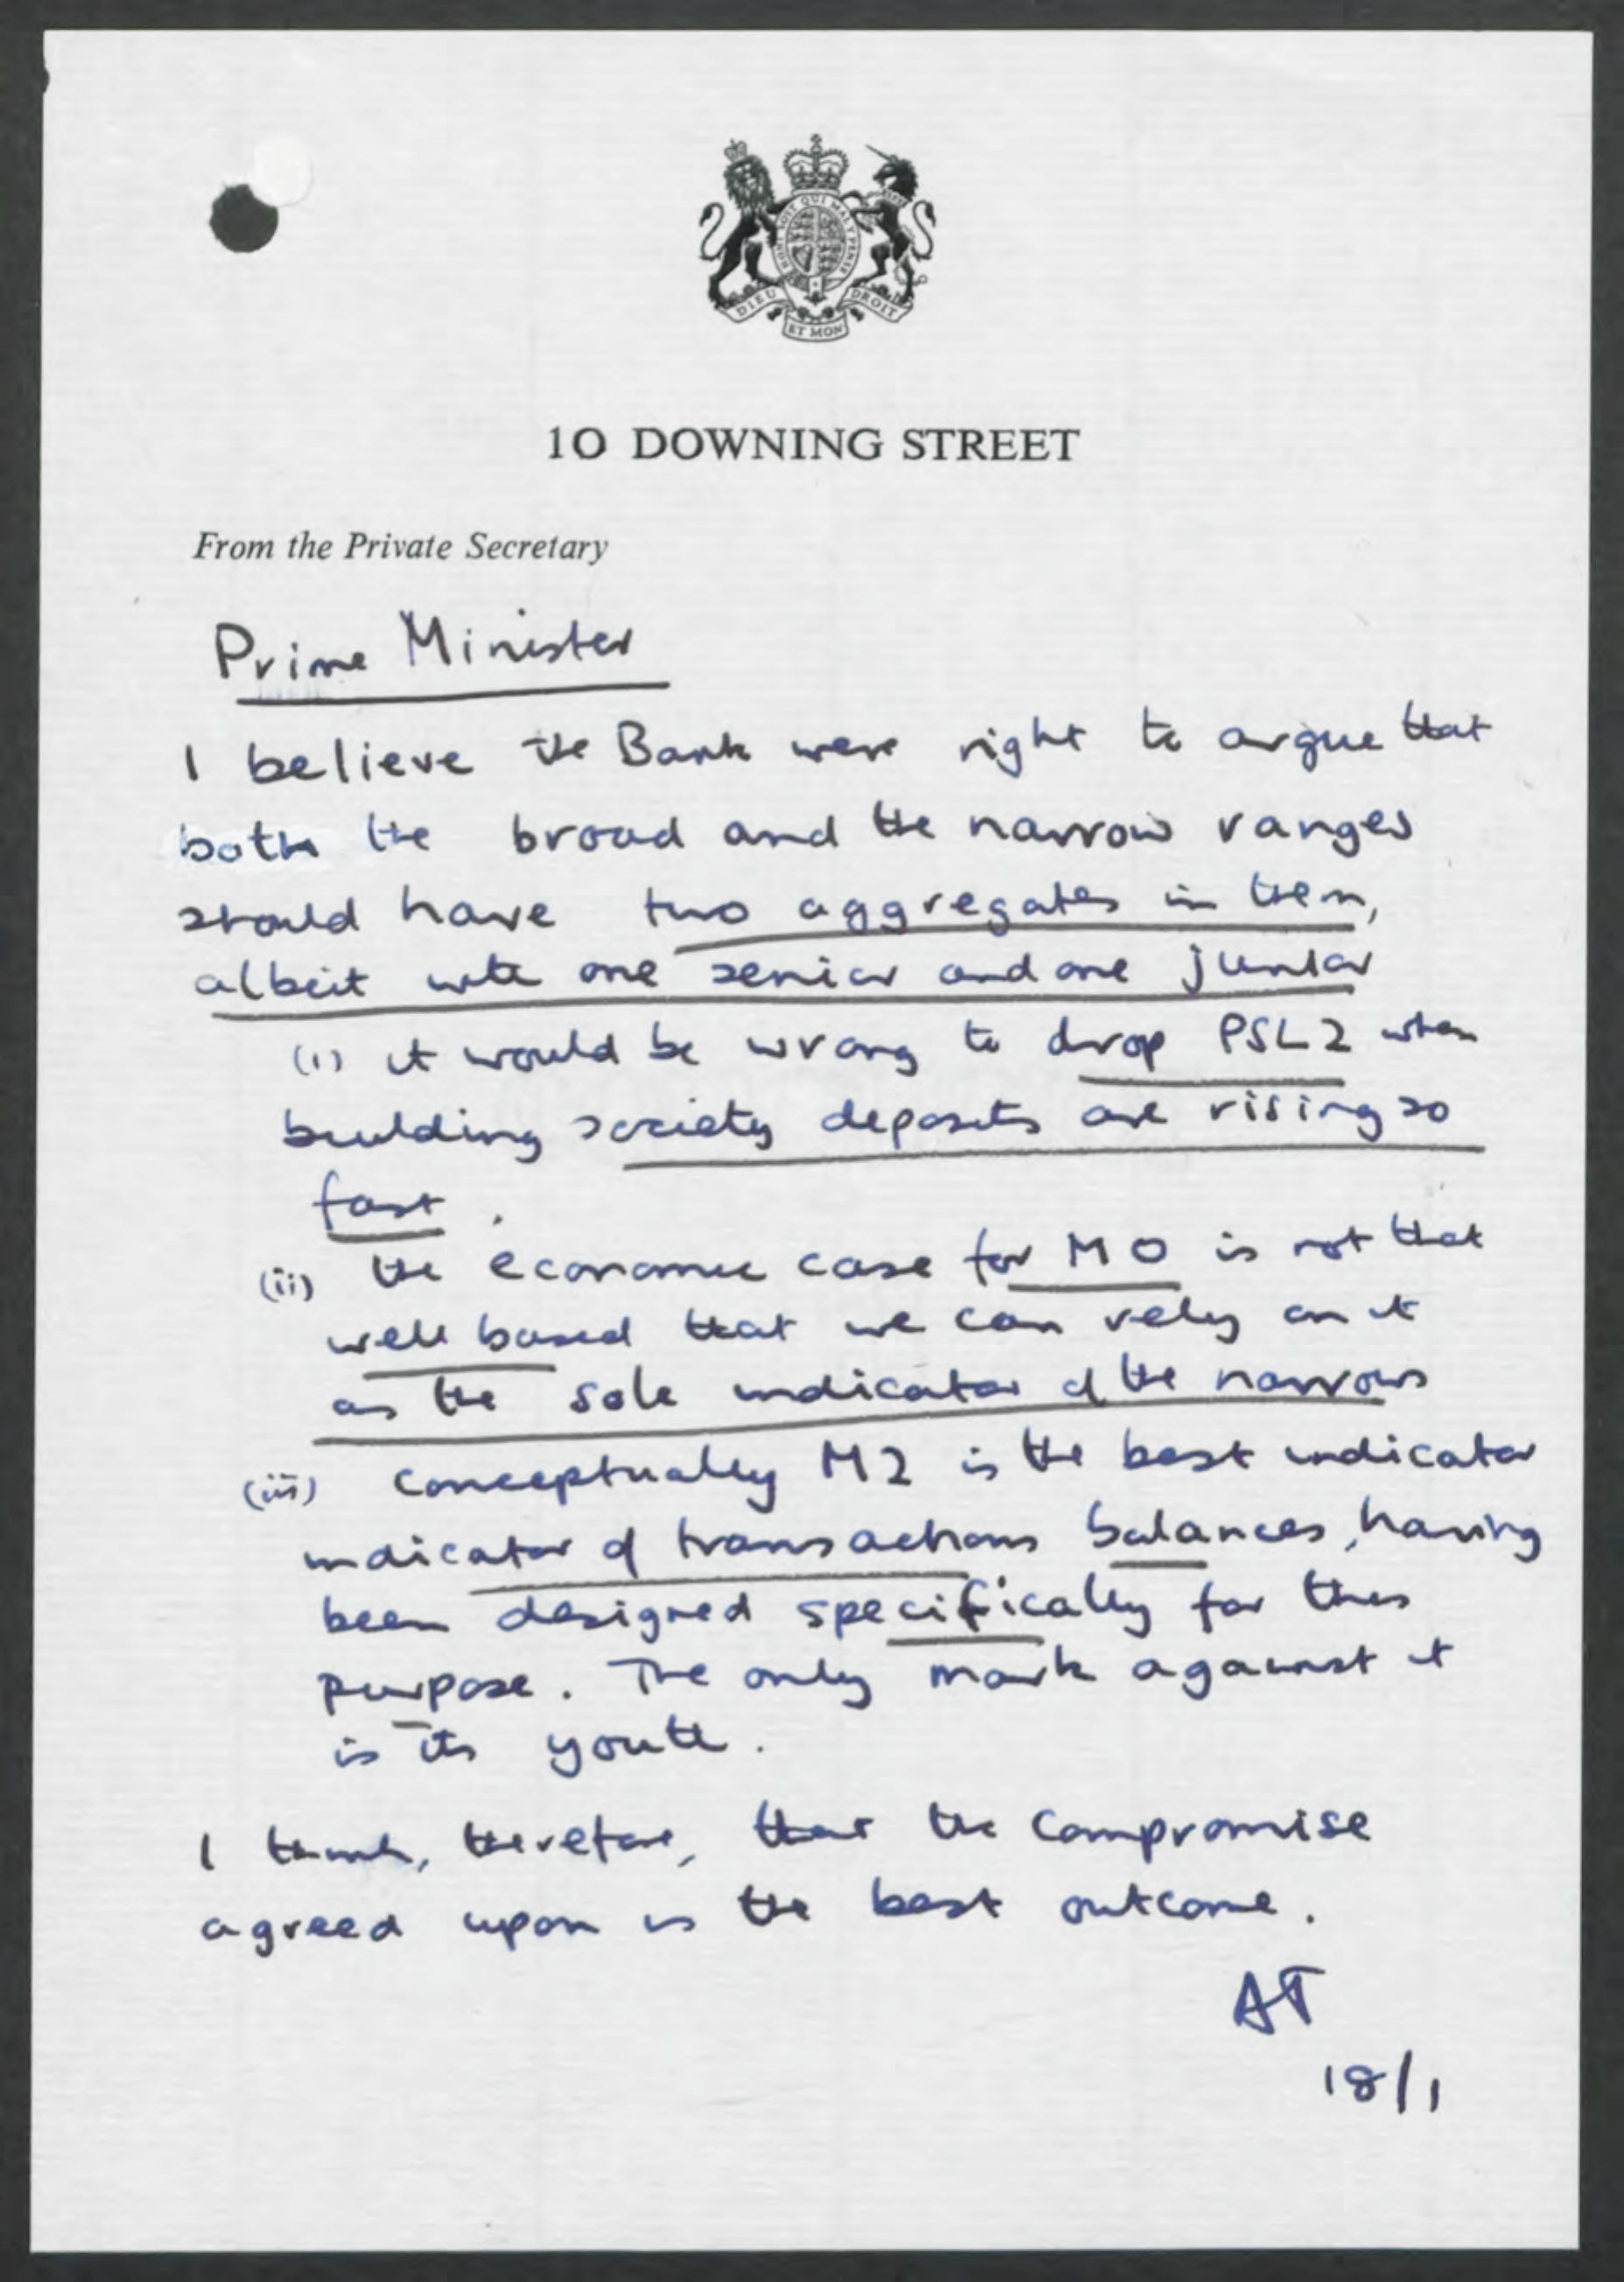 HONI SOIT QUI MAL Y PENSE
DIEU ET MON DROIT
10 DOWNING STREET
From the Private Secretary
Prime Minister
I believe the Bank were right to argue that
both the broad and the narrow ranges
should have two aggregates in them,
albeit with one senior and one junior
(i) it would be wrong to drop PSL2 when
building society deposits are rising so
fast.
(ii) the economic case for M0 is not that
well based that we can rely on it
as the sole indicator of the narrows
(iii) conceptually M2 is the best indicator
indicator of transactions balances, having
been designed specifically for this
purpose. The only mark against it
is its youth.
I think, therefore, that the compromise
agreed upon is the best outcome.
AT
18/1